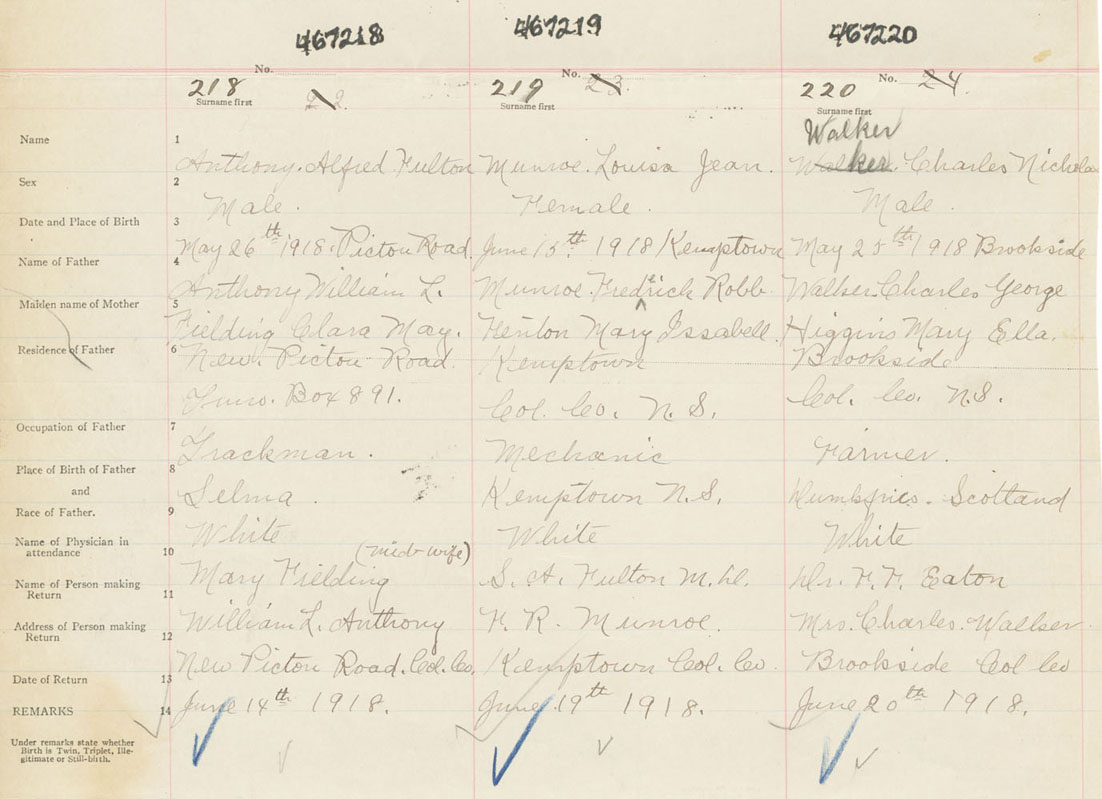 467218 467219 467220
No. No. No.
218 22. 219 23. 220 24.
Surname first Surname first Surname first
Walker
Name 1 Anthony. Alfred Fulton Munroe. Louisa Jean. Walker. Charles Nicholas
Sex 2 Male. Female. Male.
Date and Place of Birth 3 May 26th 1918. Picton Road. June 15th. 1918 Kemptown May 25th 1918 Brookside
Name of Father 4 Anthony William L. Munroe. Fredrick Robb. Walker. Charles George
Maiden name of Mother 5 Fielding Clara May. Fenton Mary Issabell. Higgins Mary Ella.
Residence of Father 6 New. Picton Road. Kemptown Brookside
Truro. Box 891. Col. Co. N.S. Col. Co. N.S.
Occupation of Father 7 Trackman. Mechanic Farmer.
Place of Birth of Father 8 Selma. Kemptown N.S. Dumfries. Scotland
and
Race of Father. 9 White White White
Name of Physician in
attendance 10 Mary Fielding (mid-wife) S. A. Fulton M.D. Dr. F. F. Eaton
Name of Person making
Return 11 William L. Anthony F. R. Munroe. Mrs. Charles. Walker.
Address of Person making
Return 12 New Picton Road. Col. Co. Kemptown Col. Co. Brookside Col Co
Date of Return 13 June 14th 1918. June 19th 1918. June 20th 1918.
REMARKS 14
Under remarks state whether
Birth is Twin, Triplet, Ille-
gitimate or Still-birth.